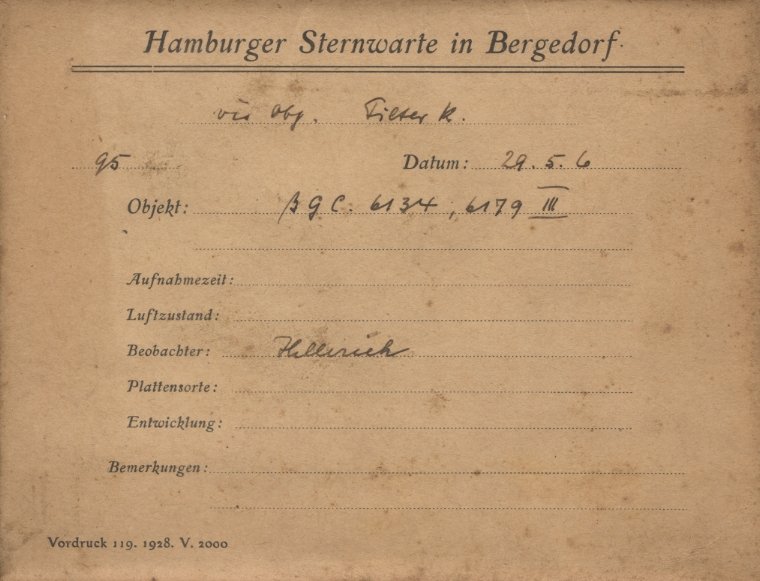 Hamburger Sternwarte in Bergedorf
vis Obj. Filter K.
95 Datum: 29. 5. 6
Objekt: β G C. 6134, 6179 III
Aufnahmezeit:
Luftzustand:
Beobachter: Hellerich
Plattensorte:
Entwicklung:
Bemerkungen:
Vordruck 119. 1928. V. 2000